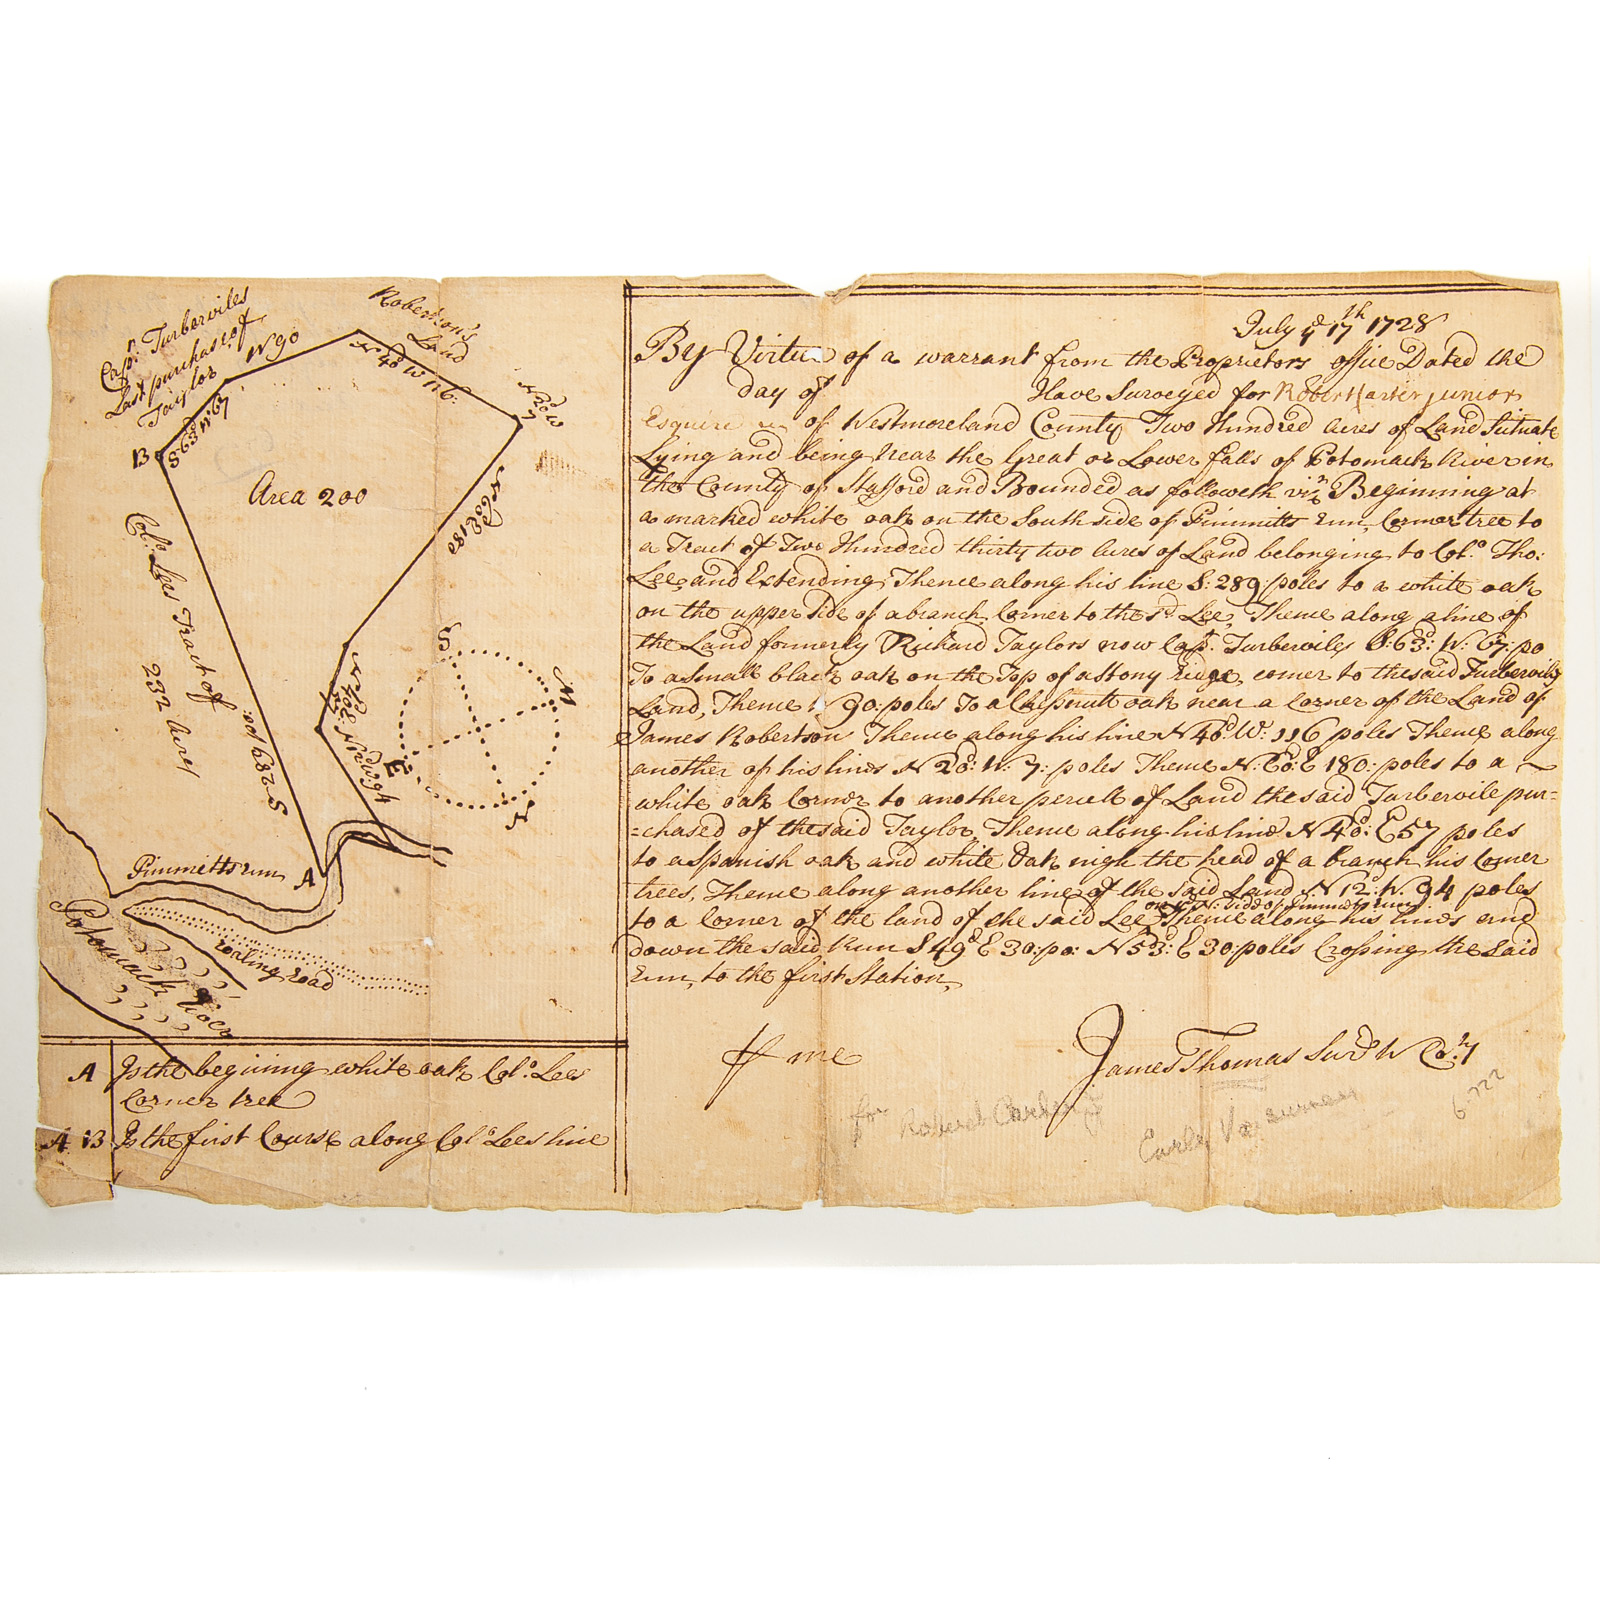 Cap.n Turberviles
Last purchase of
Taylor
W 90
Robertson's
Land
N 4d W 116:
N 20d W
7
S 63d W 67
B
Area 200
N 60d E 180
Col.o Lees Tract of
232 acres
S 289 po:
N 4d E
57
N 12d W: 94
S
W
E
N
Pimmetts run
A
Potomack River
roaling road
A Is the begining white oak Col.o Lees
Corner tree
A B Is the first Course along Col.o Lees line
July ye 17th 1728
By Virtue of a warrant from the Proprietors office Dated the
day of Have Surveyed for Robert Carter junior
Esquire of Westmoreland County Two Hundred acres of Land Situate
Lying and being near the Great or Lower falls of Potomack River in
the County of Stafford and Bounded as followeth viz Beginning at
a marked white oak on the South side of Pimmitts run, Corner tree to
a Tract of Two Hundred thirty two acres of Land belonging to Col.o Tho:
Lee, and Extending Thence along his line S: 289 poles to a white oak
on the upper side of a branch Corner to the sd Lee, Thence along a line of
the Land formerly Richard Taylors now Cap.t Turberviles S: 63d: W: 67: po
To a small black oak on the Top of a stony ridge, corner to the said Turbervils
Land, Thence 90: poles To a Chesnutt oak near a Corner of the Land of
James Robertson Thence along his line N 4d: W: 116 poles Thence along
another of his lines N 20: W: 7: poles Thence N: 60: E 180: poles to a
white oak Corner to another percell of Land the said Turbervile pur=
=chased of the said Taylor, Thence along his line N 4d: E 57 poles
to a spanish oak and white Oak nigh the head of a branch his Corner
trees, Thence along another line of the said Land N 12d: W. 94 poles
on ye N: side of Pimmits run
to a Corner of the land of the said Lee Thence along his lines and
down the said Run S 49d E 30: po: N 53d: E 30 poles Crossing the said
run, to the first Station,
me
James Thomas Surv.r W Co.ty
for Robert Carter
Early Va survey